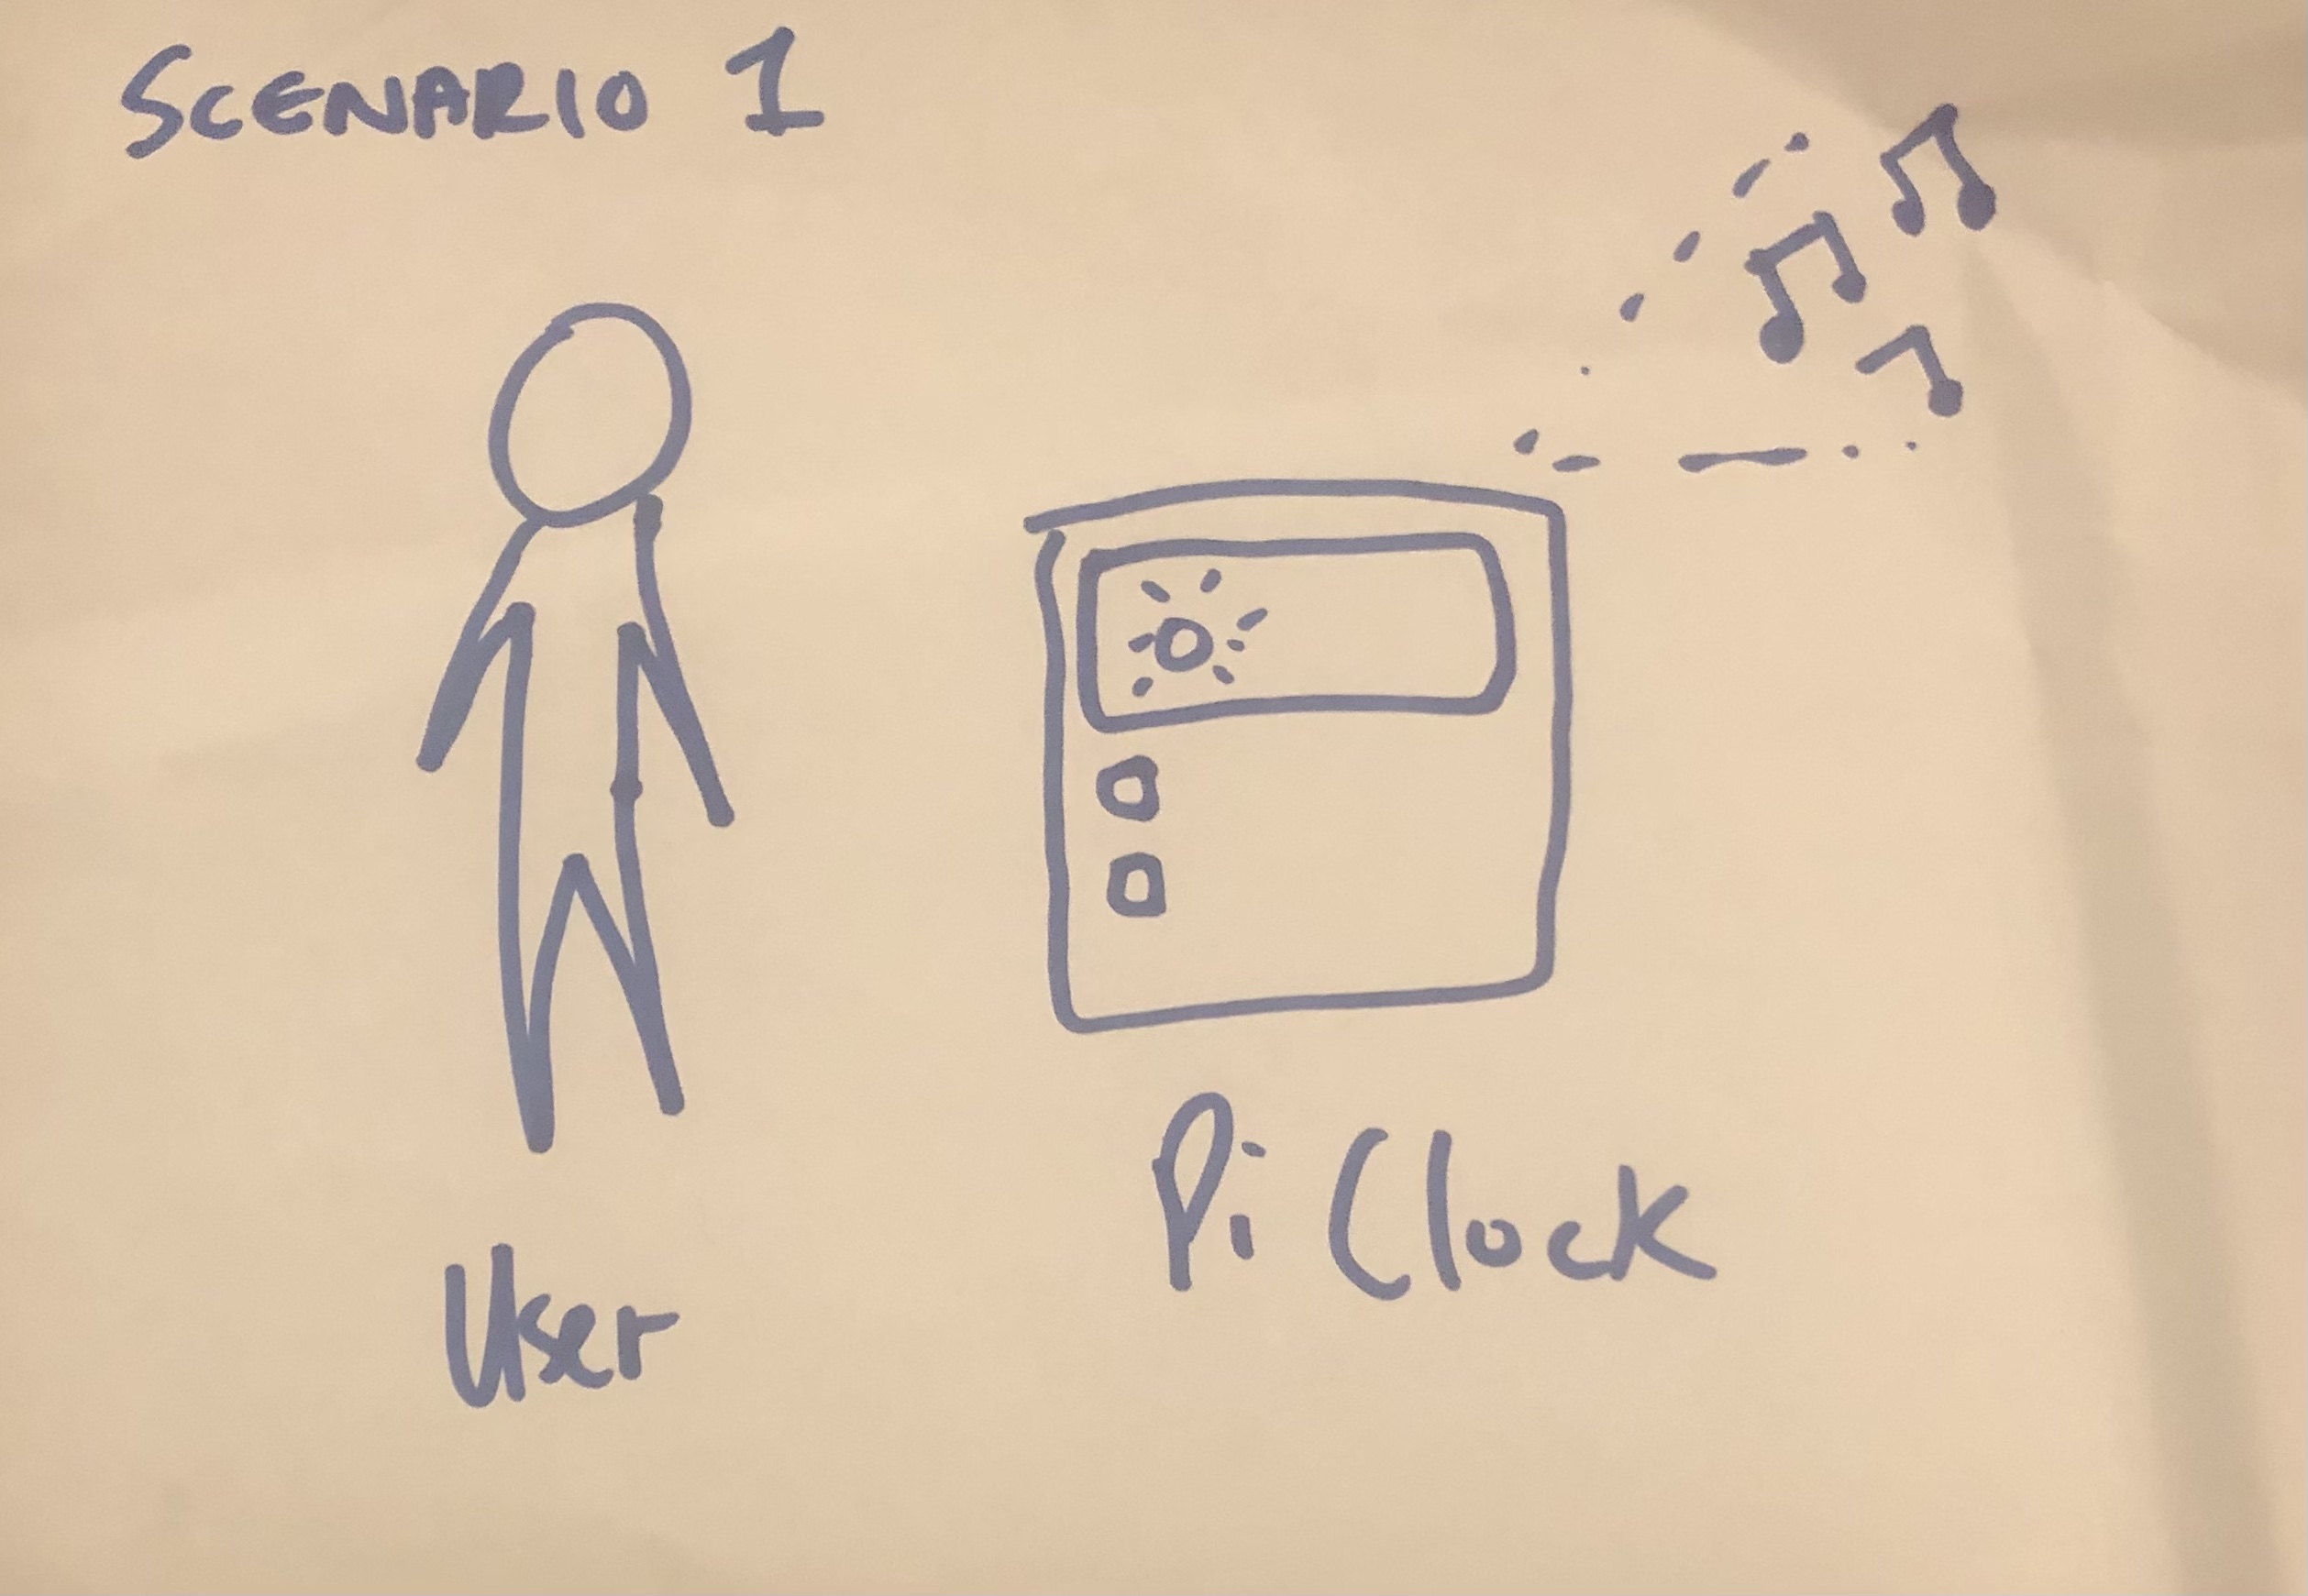 SCENARIO 1
User
Pi Clock